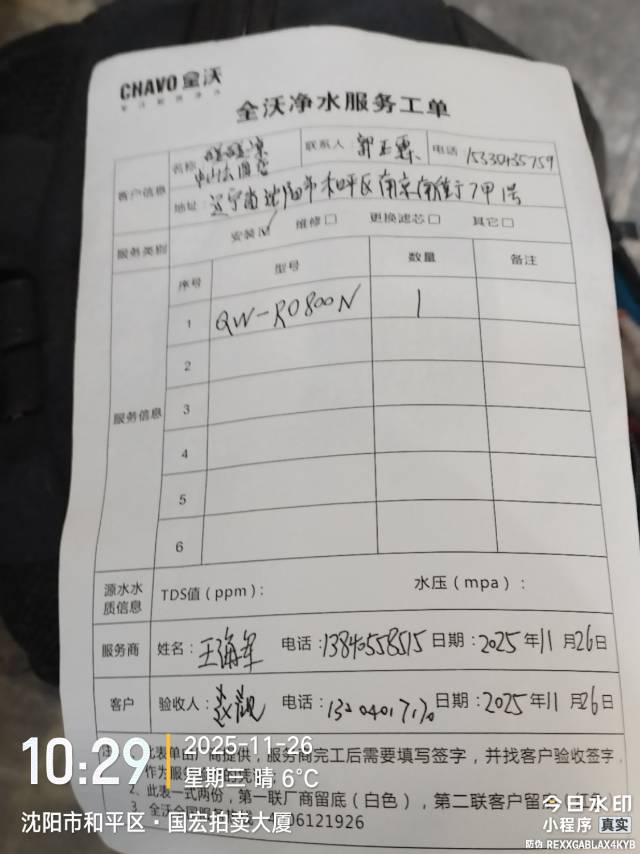 CHAVO 全沃
全沃净水服务工单
客户信息 名称 联系人: 电话
地址: 辽宁省沈阳市和平区南京南街7甲1号
服务类别 安装☑ 维修□ 更换滤芯□ 其它□
服务信息 序号 型号 数量 备注
1 QW-RO800N 1
2
3
4
5
6
源水水质信息 TDS值(ppm): 水压(mpa):
服务商 姓名: 王海军 电话:13840558515 日期: 2025年11月26日
客户 验收人: 电话: 日期: 2025年11月26日
此表单由厂商提供,服务商完工后需要填写签字,并找客户验收签字,
作为服务
2、此表一式两份,第一联厂商留底(白色),第二联客户留
3、全沃全国服务 6121926
10:29 2025-11-26
星期三 晴 6℃
沈阳市和平区·国宏拍卖大厦
今日水印
小程序 真实
防伪 REXXGABLAX4KYB